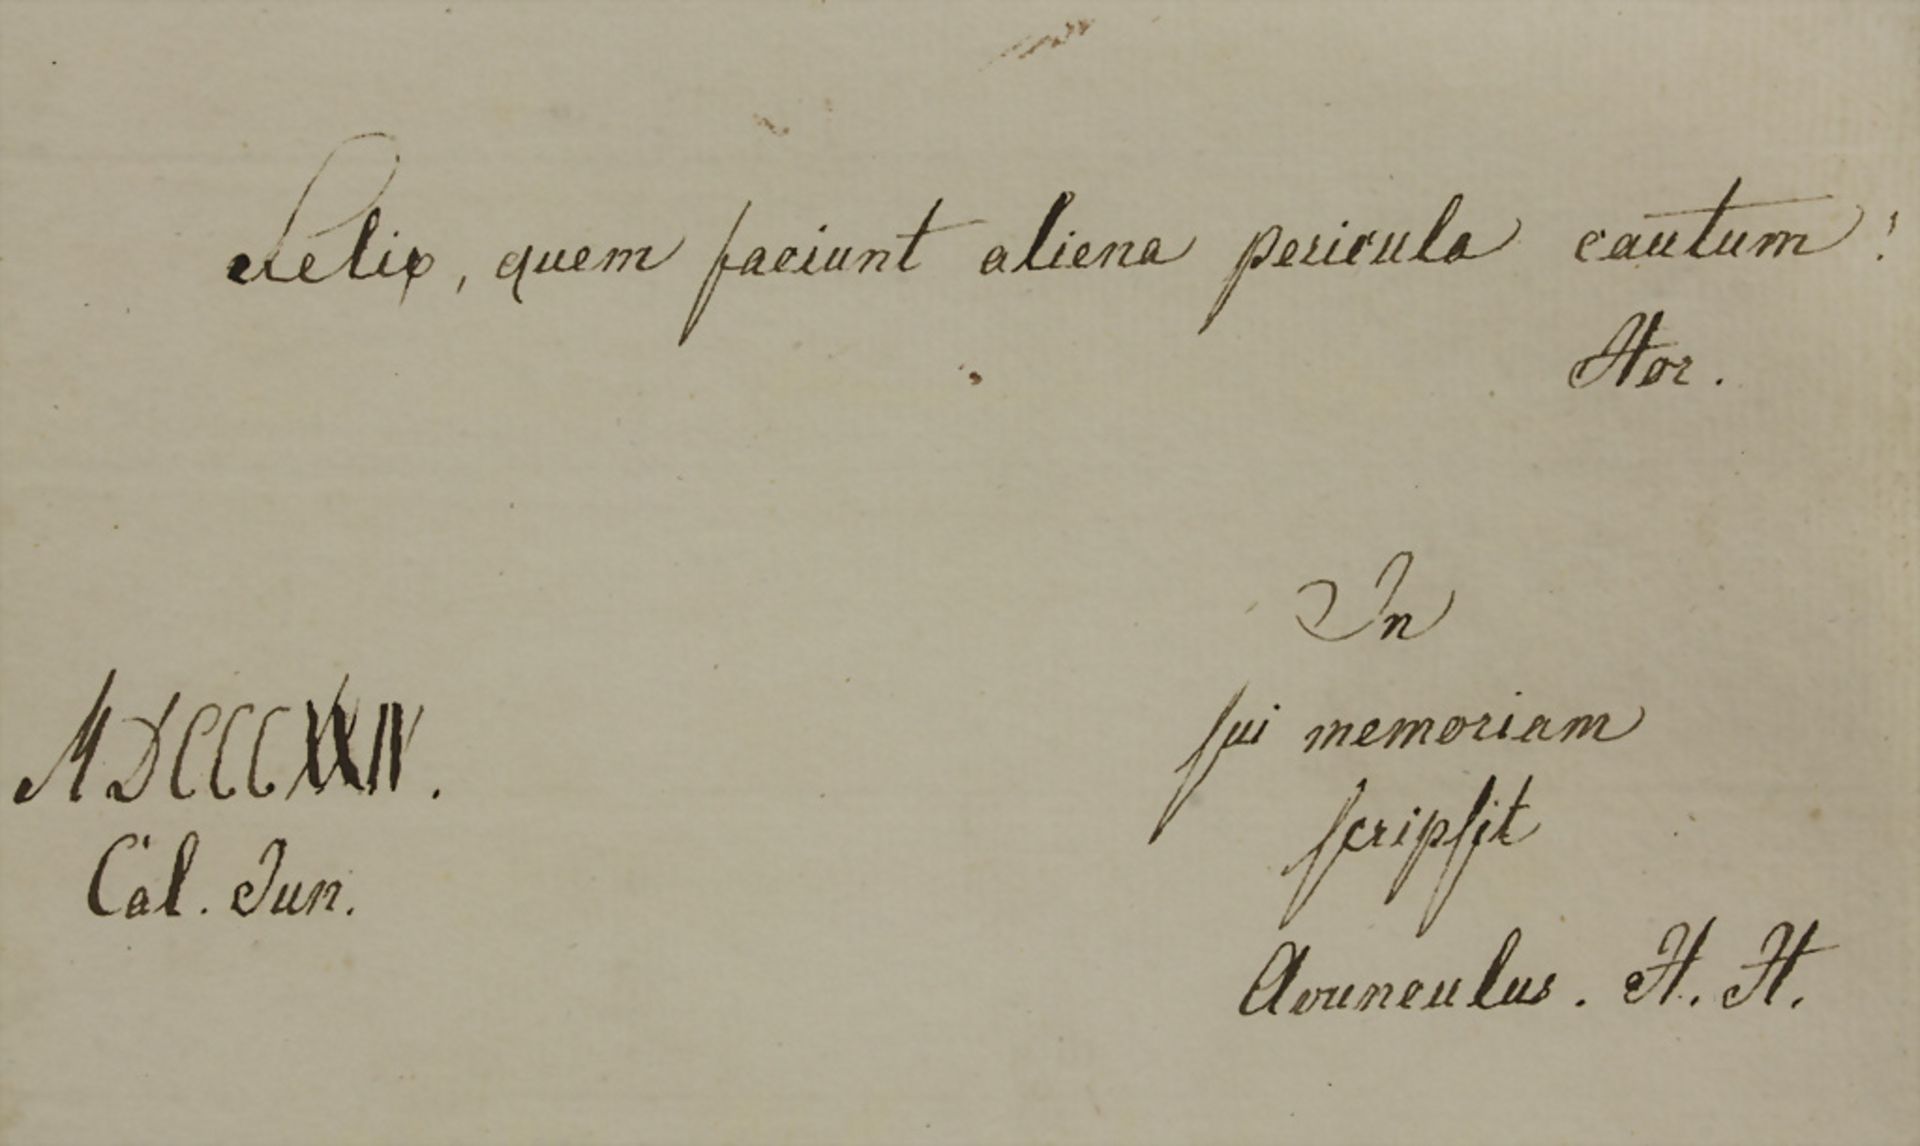 Felix, quem faciunt aliena pericula cautum!
Hor.
In
sui memoriam
scripsit
Avunculus. H. H.
MDCCCXXIV.
Cal. Jun.